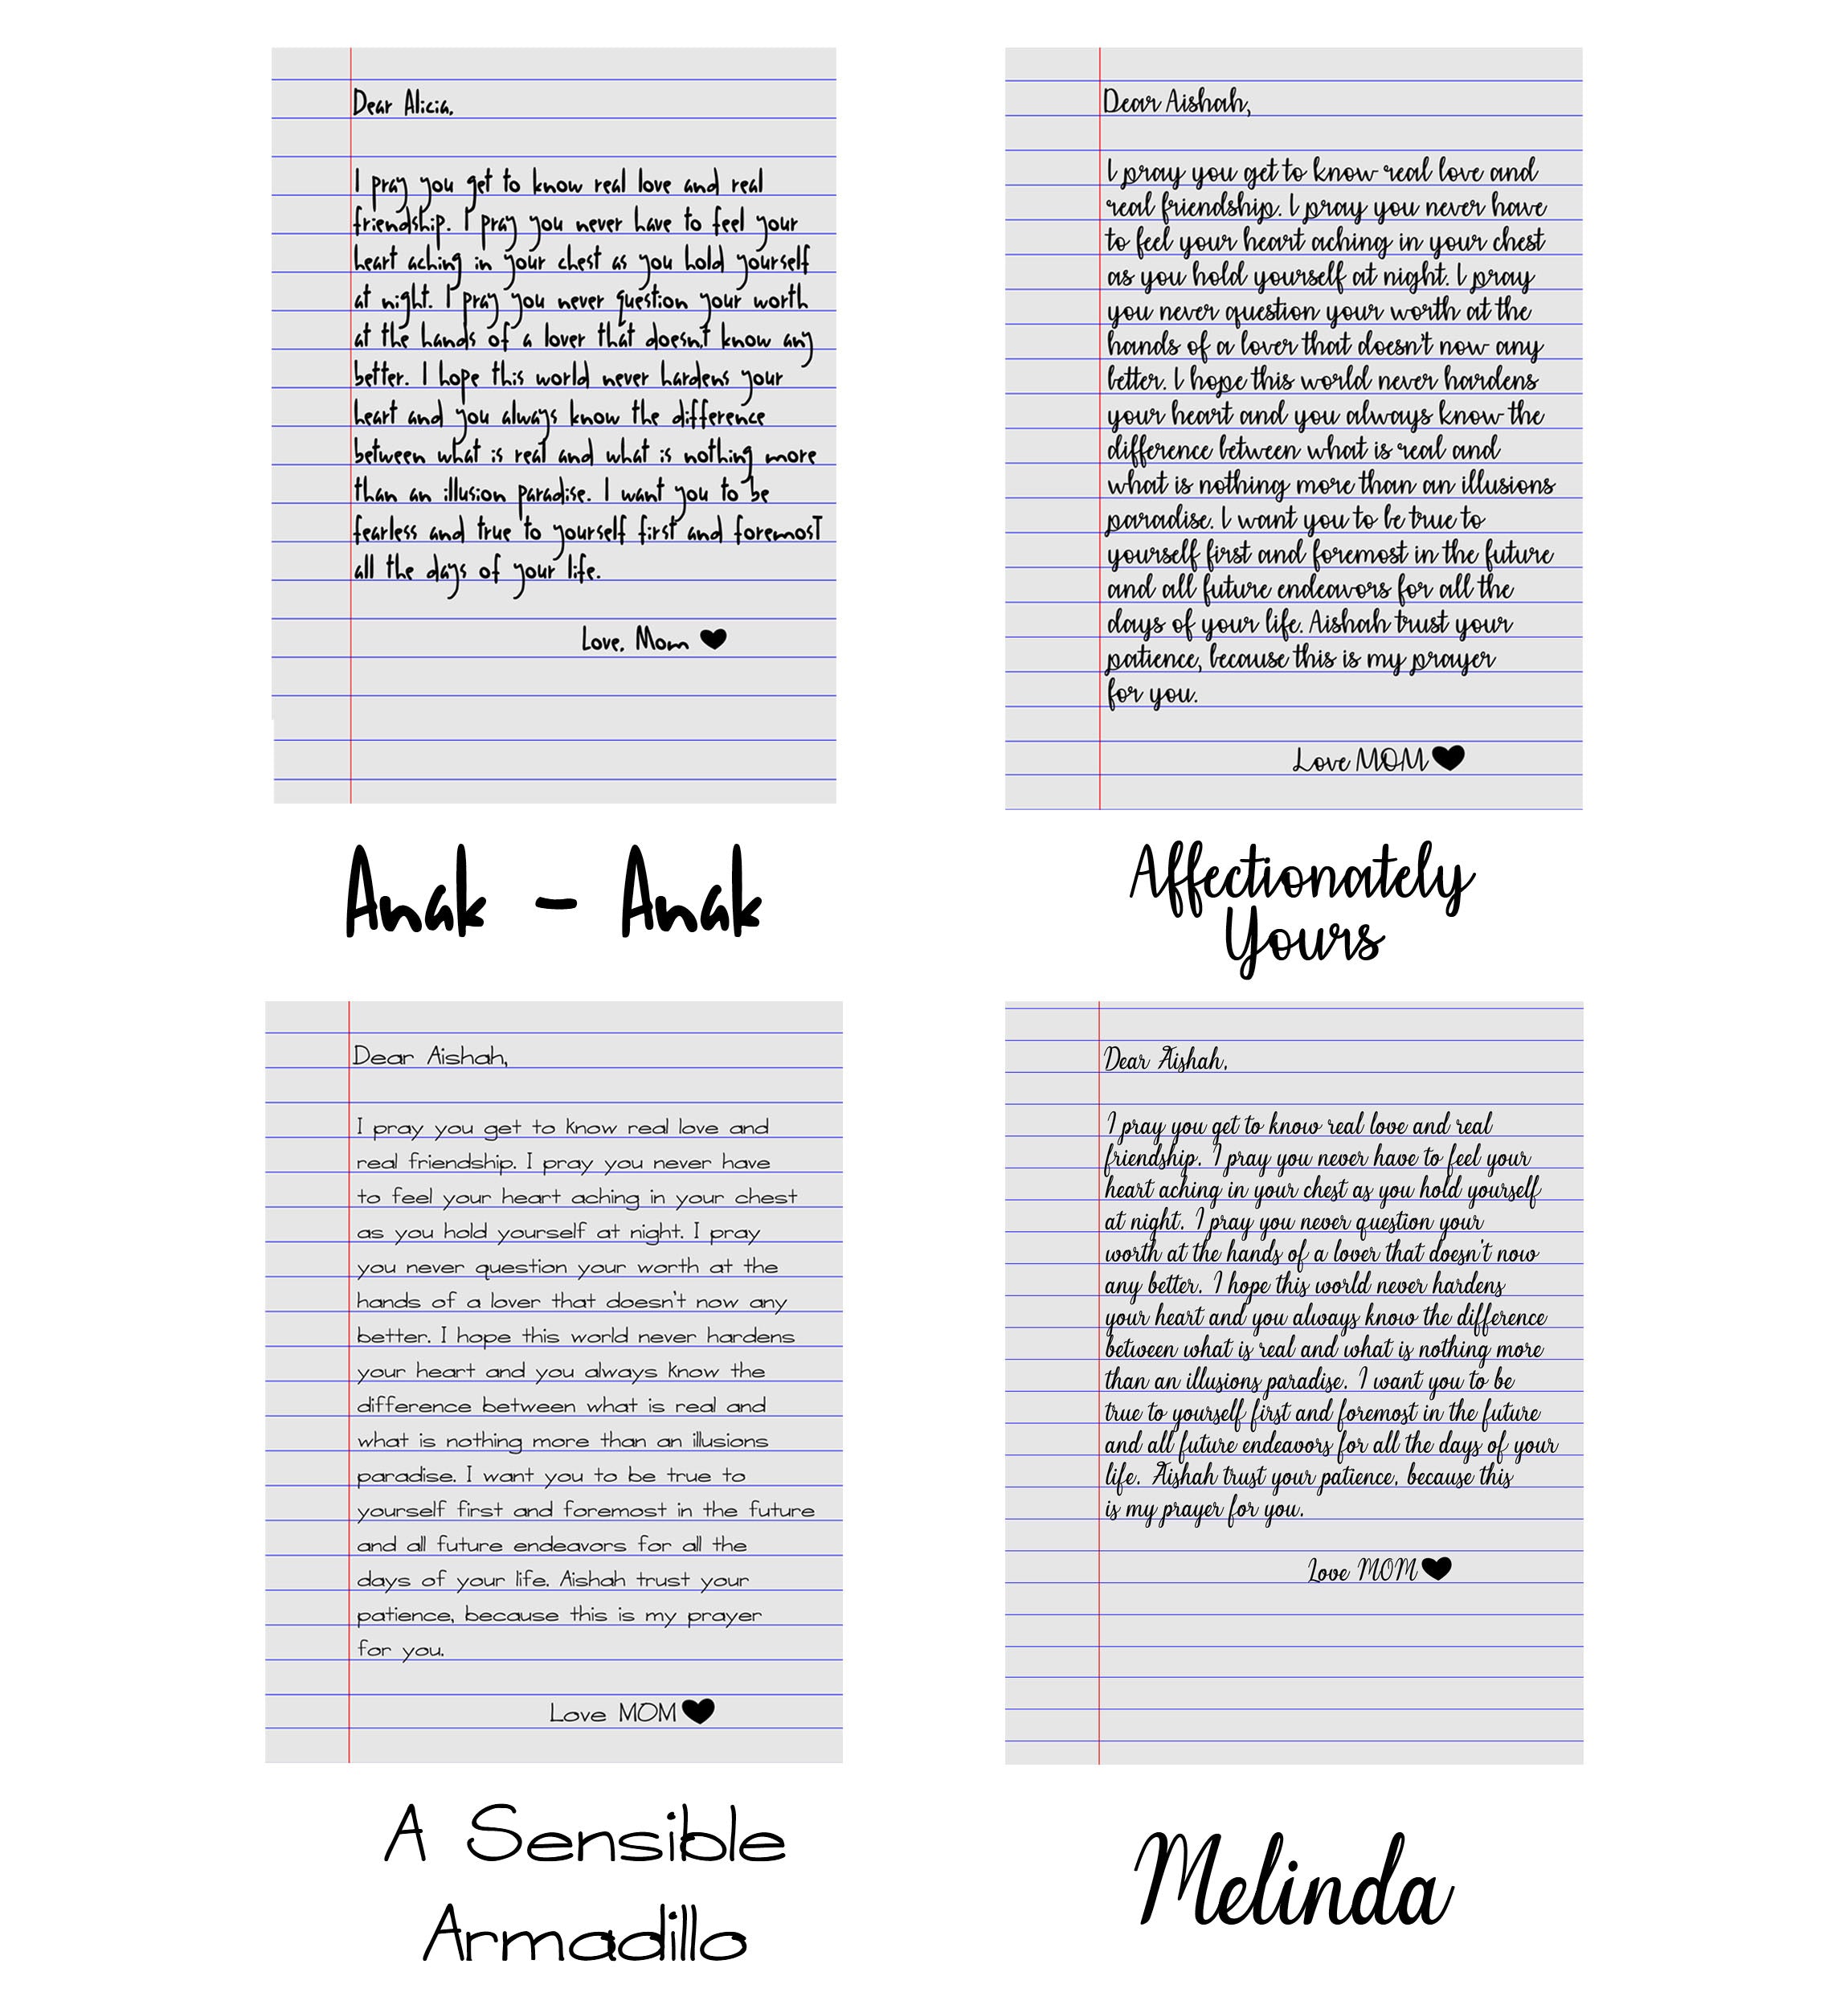 Dear Alicia,
I pray you get to know real love and real
friendship. I pray you never have to feel your
heart aching in your chest as you hold yourself
at night. I pray you never question your worth
at the hands of a lover that doesn't know any
better. I hope this world never hardens your
heart and you always know the difference
between what is real and what is nothing more
than an illusion paradise. I want you to be
fearless and true to yourself first and foremost
all the days of your life.
Love, Mom
Anak - Anak
Dear Aishah,
I pray you get to know real love and
real friendship. I pray you never have
to feel your heart aching in your chest
as you hold yourself at night. I pray
you never question your worth at the
hands of a lover that doesn't now any
better. I hope this world never hardens
your heart and you always know the
difference between what is real and
what is nothing more than an illusions
paradise. I want you to be true to
yourself first and foremost in the future
and all future endeavors for all the
days of your life. Aishah trust your
patience, because this is my prayer
for you.
Love MOM
Affectionately
Yours
Dear Aishah,
I pray you get to know real love and
real friendship. I pray you never have
to feel your heart aching in your chest
as you hold yourself at night. I pray
you never question your worth at the
hands of a lover that doesn't now any
better. I hope this world never hardens
your heart and you always know the
difference between what is real and
what is nothing more than an illusions
paradise. I want you to be true to
yourself first and foremost in the future
and all future endeavors for all the
days of your life. Aishah trust your
patience, because this is my prayer
for you.
Love MOM
A Sensible
Armadillo
Dear Aishah,
I pray you get to know real love and real
friendship. I pray you never have to feel your
heart aching in your chest as you hold yourself
at night. I pray you never question your
worth at the hands of a lover that doesn't now
any better. I hope this world never hardens
your heart and you always know the difference
between what is real and what is nothing more
than an illusions paradise. I want you to be
true to yourself first and foremost in the future
and all future endeavors for all the days of your
life. Aishah trust your patience, because this
is my prayer for you.
Love MOM
Melinda